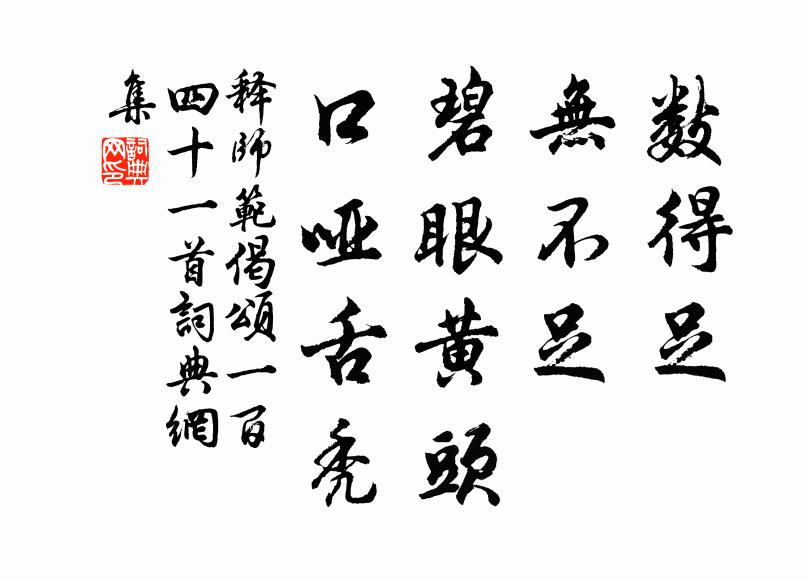 数得足
無不足
碧眼黄頭
口哑舌秃
释師範偈頌一百
四十一首詞典網
集
詞典
网印